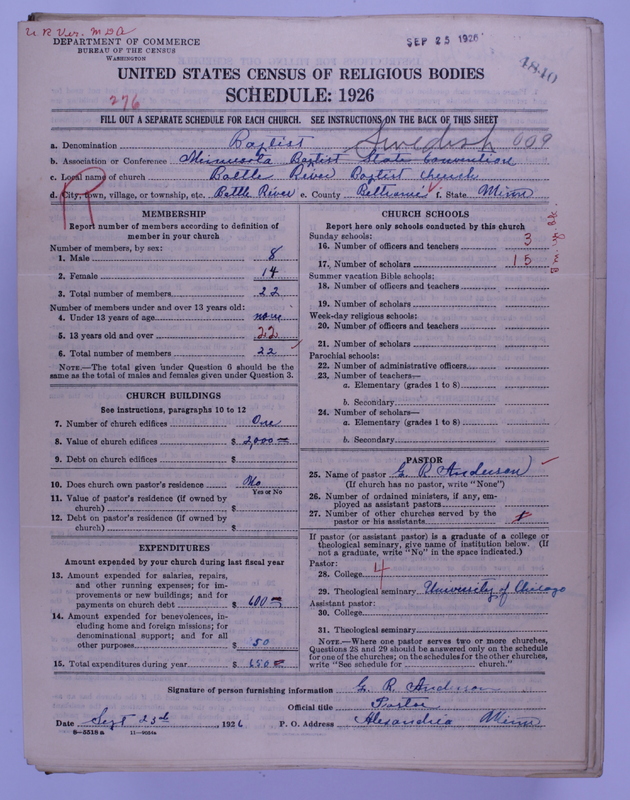 U.R. Ver. M.D.A.
DEPARTMENT OF COMMERCE
BUREAU OF THE CENSUS
WASHINGTON
SEP 25 1926
1840
UNITED STATES CENSUS OF RELIGIOUS BODIES
SCHEDULE: 1926
276
FILL OUT A SEPARATE SCHEDULE FOR EACH CHURCH. SEE INSTRUCTIONS ON THE BACK OF THIS SHEET
a. Denomination Baptist Swedish 009
b. Association or Conference Minnesota Baptist State Convention
c. Local name of church Battle River Baptist Church
d. City, town, village, or township, etc. Battle River e. County Beltrami f. State Minn
R
MEMBERSHIP
Report number of members according to definition of member in your church
Number of members, by sex:
1. Male 8
2. Female 14
3. Total number of members 22
Number of members under and over 13 years old:
4. Under 13 years of age none
5. 13 years old and over 22
6. Total number of members 22
NOTE.—The total given under Question 6 should be the same as the total of males and females given under Question 3.
CHURCH BUILDINGS
See instructions, paragraphs 10 to 12
7. Number of church edifices One
8. Value of church edifices $ 2,000
9. Debt on church edifices $
10. Does church own pastor's residence No
Yes or No
11. Value of pastor's residence (if owned by church) $
12. Debt on pastor's residence (if owned by church) $
EXPENDITURES
Amount expended by your church during last fiscal year
13. Amount expended for salaries, repairs, and other running expenses; for improvements or new buildings; and for payments on church debt $ 600
14. Amount expended for benevolences, including home and foreign missions; for denominational support; and for all other purposes $ 50
15. Total expenditures during year $ 650
CHURCH SCHOOLS
Report here only schools conducted by this church
Sunday schools:
16. Number of officers and teachers 3
17. Number of scholars 15
Summer vacation Bible schools:
18. Number of officers and teachers
19. Number of scholars
Week-day religious schools:
20. Number of officers and teachers
21. Number of scholars
Parochial schools:
22. Number of administrative officers
23. Number of teachers—
a. Elementary (grades 1 to 8)
b. Secondary
24. Number of scholars—
a. Elementary (grades 1 to 8)
b. Secondary
PASTOR
25. Name of pastor G. R. Anderson
(If church has no pastor, write "None")
26. Number of ordained ministers, if any, employed as assistant pastors
27. Number of other churches served by the pastor or his assistants
If pastor (or assistant pastor) is a graduate of a college or theological seminary, give name of institution below. (If not a graduate, write "No" in the space indicated.)
Pastor:
28. College 4
29. Theological seminary University of Chicago
Assistant pastor:
30. College
31. Theological seminary
NOTE.—Where one pastor serves two or more churches, Questions 28 and 29 should be answered only on the schedule for one of the churches; on the schedules for the other churches, write "See schedule for church."
Signature of person furnishing information G. R. Anderson
Official title Pastor
Date Sept 23d, 1926 P. O. Address Alexandria Minn
8—5518 a 11—9024a